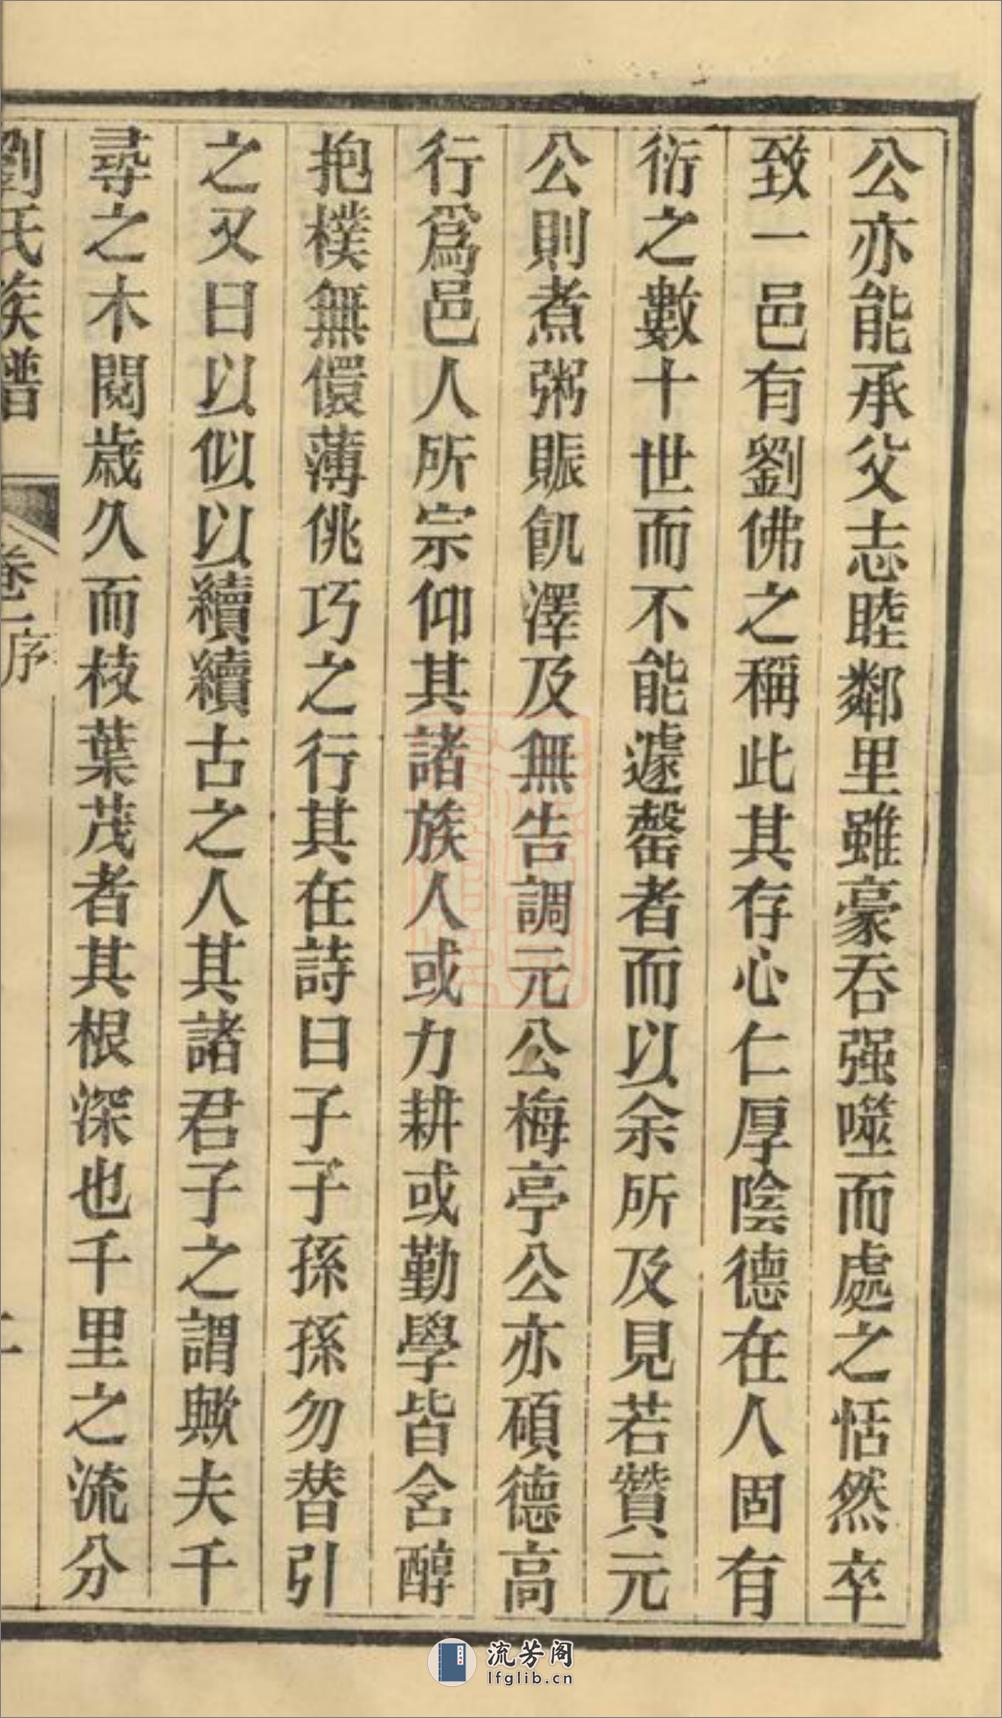 公亦能承父志睦鄰里雖豪吞强噬而處之恬然卒
致一邑有劉佛之稱此其存心仁厚陰德在人固有
衍之數十世而不能遽罄者而以余所及見若贊元
公則煮粥賑飢澤及無告調元公梅亭公亦碩德高
行爲邑人所宗仰其諸族人或力耕或勤學皆含醇
抱樸無儇薄佻巧之行其在詩曰子子孫孫勿替引
之又曰以似以續續古之人其諸君子之謂歟夫千
尋之木閱歲久而枝葉茂者其根深也千里之流分
劉氏族譜 卷一序
流芳阁
lfglib.cn